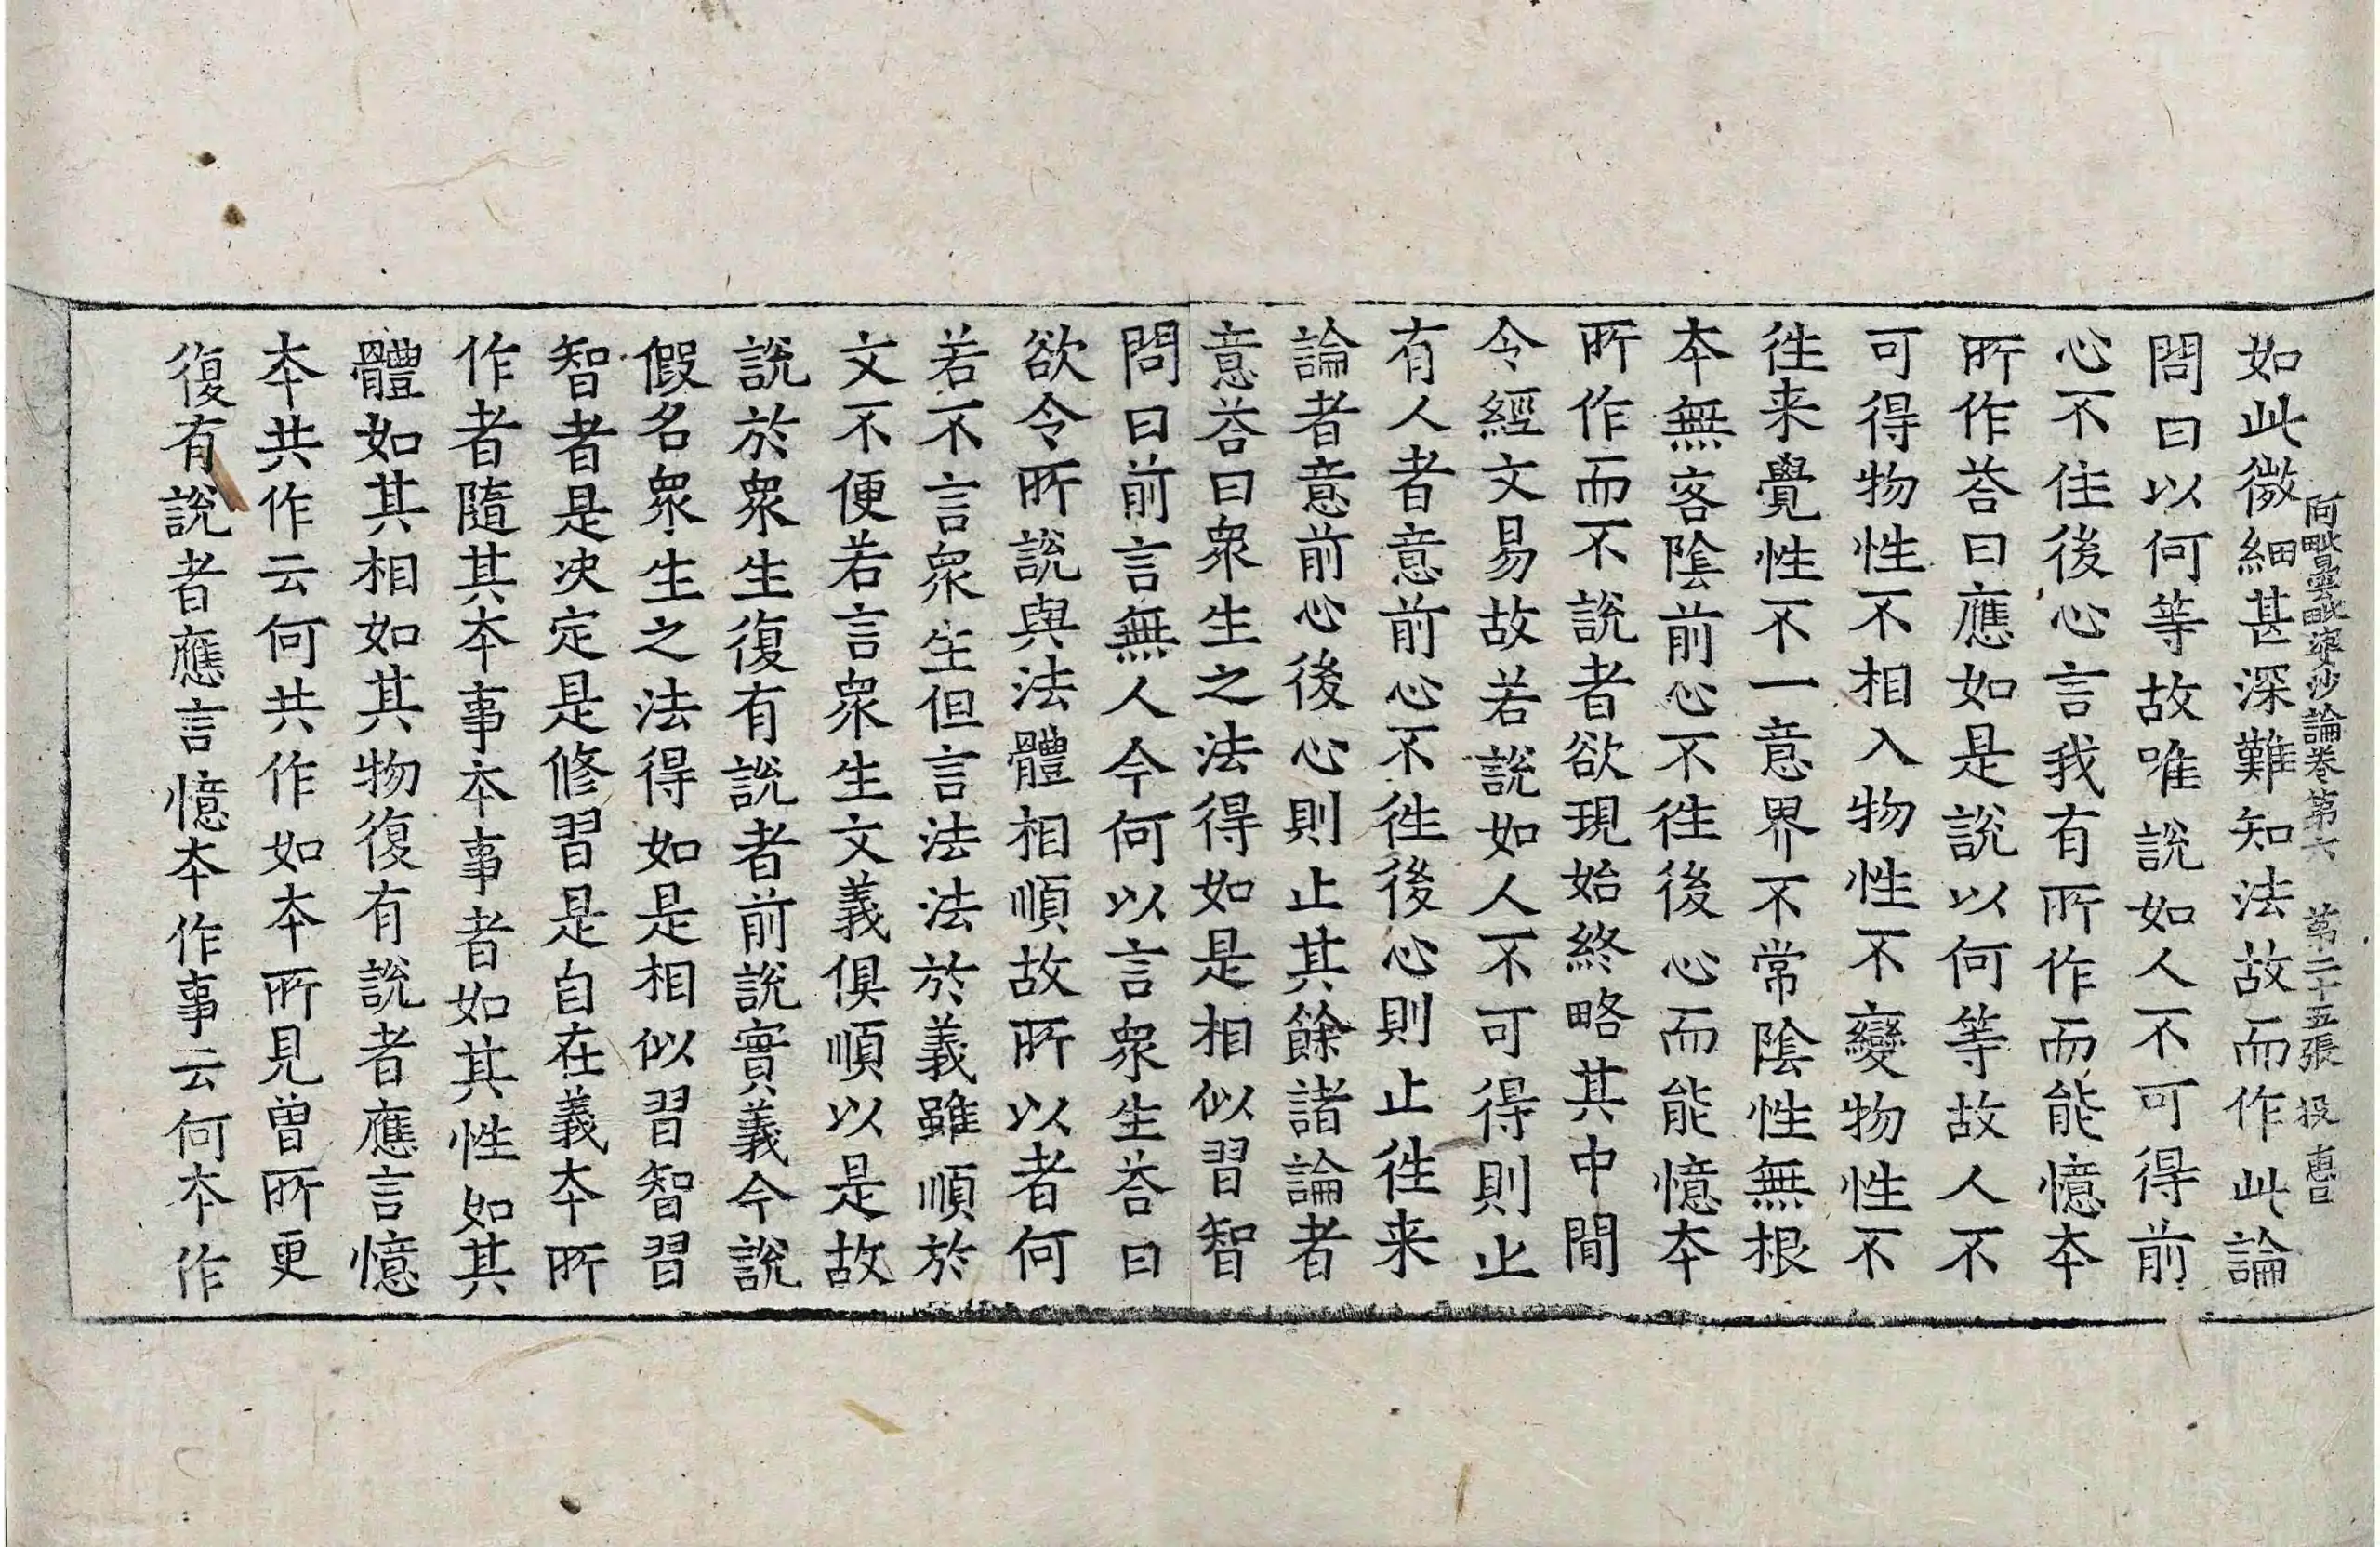 阿毗曇毗婆沙論卷第六　第二十五張　投　惠日
如此微細甚深難知法故而作此論
問曰以何等故唯說如人不可得前
心不住後心言我有所作而能憶本
所作荅曰應如是說以何等故人不
可得物性不相入物性不變物性不
徃来覺性不一意界不常陰性無根
本無客陰前心不徃後心而能憶本
所作而不說者欲現始終略其中間
令經文易故若說如人不可得則止
有人者意前心不徃後心則止徃来
論者意前心後心則止其餘諸論者
意荅曰衆生之法得如是相似習智
問曰前言無人今何以言衆生荅曰
欲令所說與法體相順故所以者何
若不言衆生但言法法於義雖順於
文不便若言衆生文義俱順以是故
說於衆生復有說者前說實義今說
假名衆生之法得如是相似習智習
智者是决定是修習是自在義本所
作者隨其本事本事者如其性如其
體如其相如其物復有說者應言憶
本共作云何共作如本所見曾所更
復有說者應言憶本作事云何本作